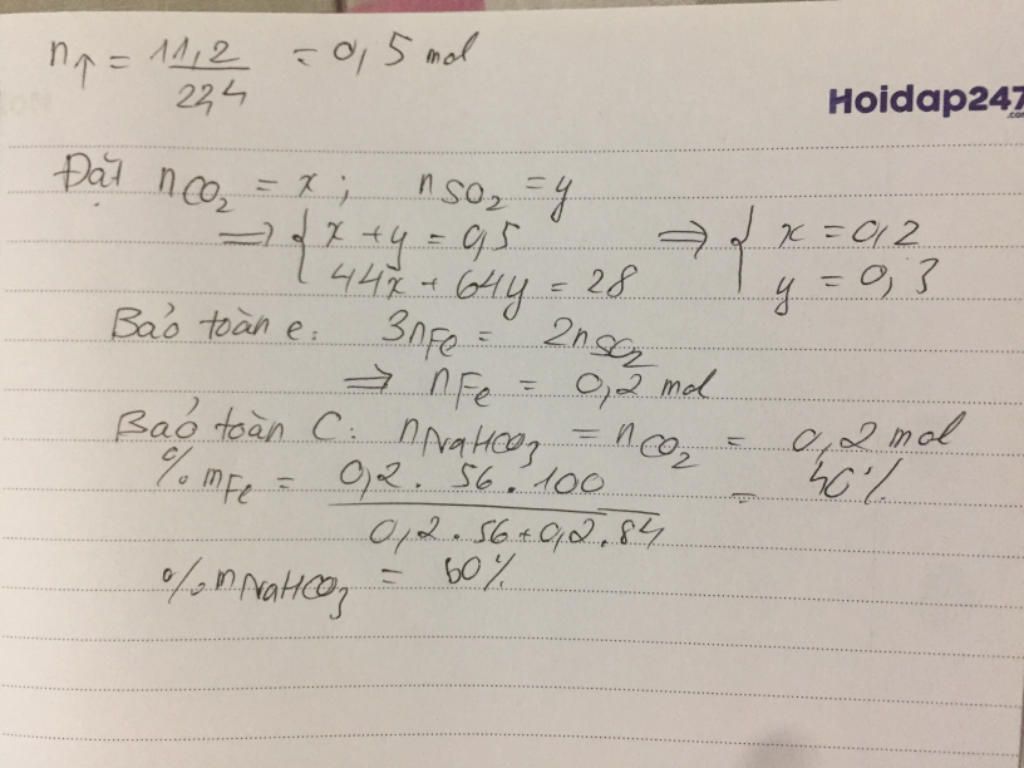 n↑ = 11,2 / 22,4 = 0,5 mol
Hoidap247.com
Đặt nCO2 = x ; nSO2 = y
=> { x + y = 0,5 => { x = 0,2
44x + 64y = 28 y = 0,3
Bảo toàn e: 3nFe = 2nSO2
=> nFe = 0,2 mol
Bảo toàn C: nNaHCO3 = nCO2 = 0,2 mol
%mFe = 0,2 . 56 . 100 / 0,2 . 56 + 0,2 . 84 = 40%
%mNaHCO3 = 60%